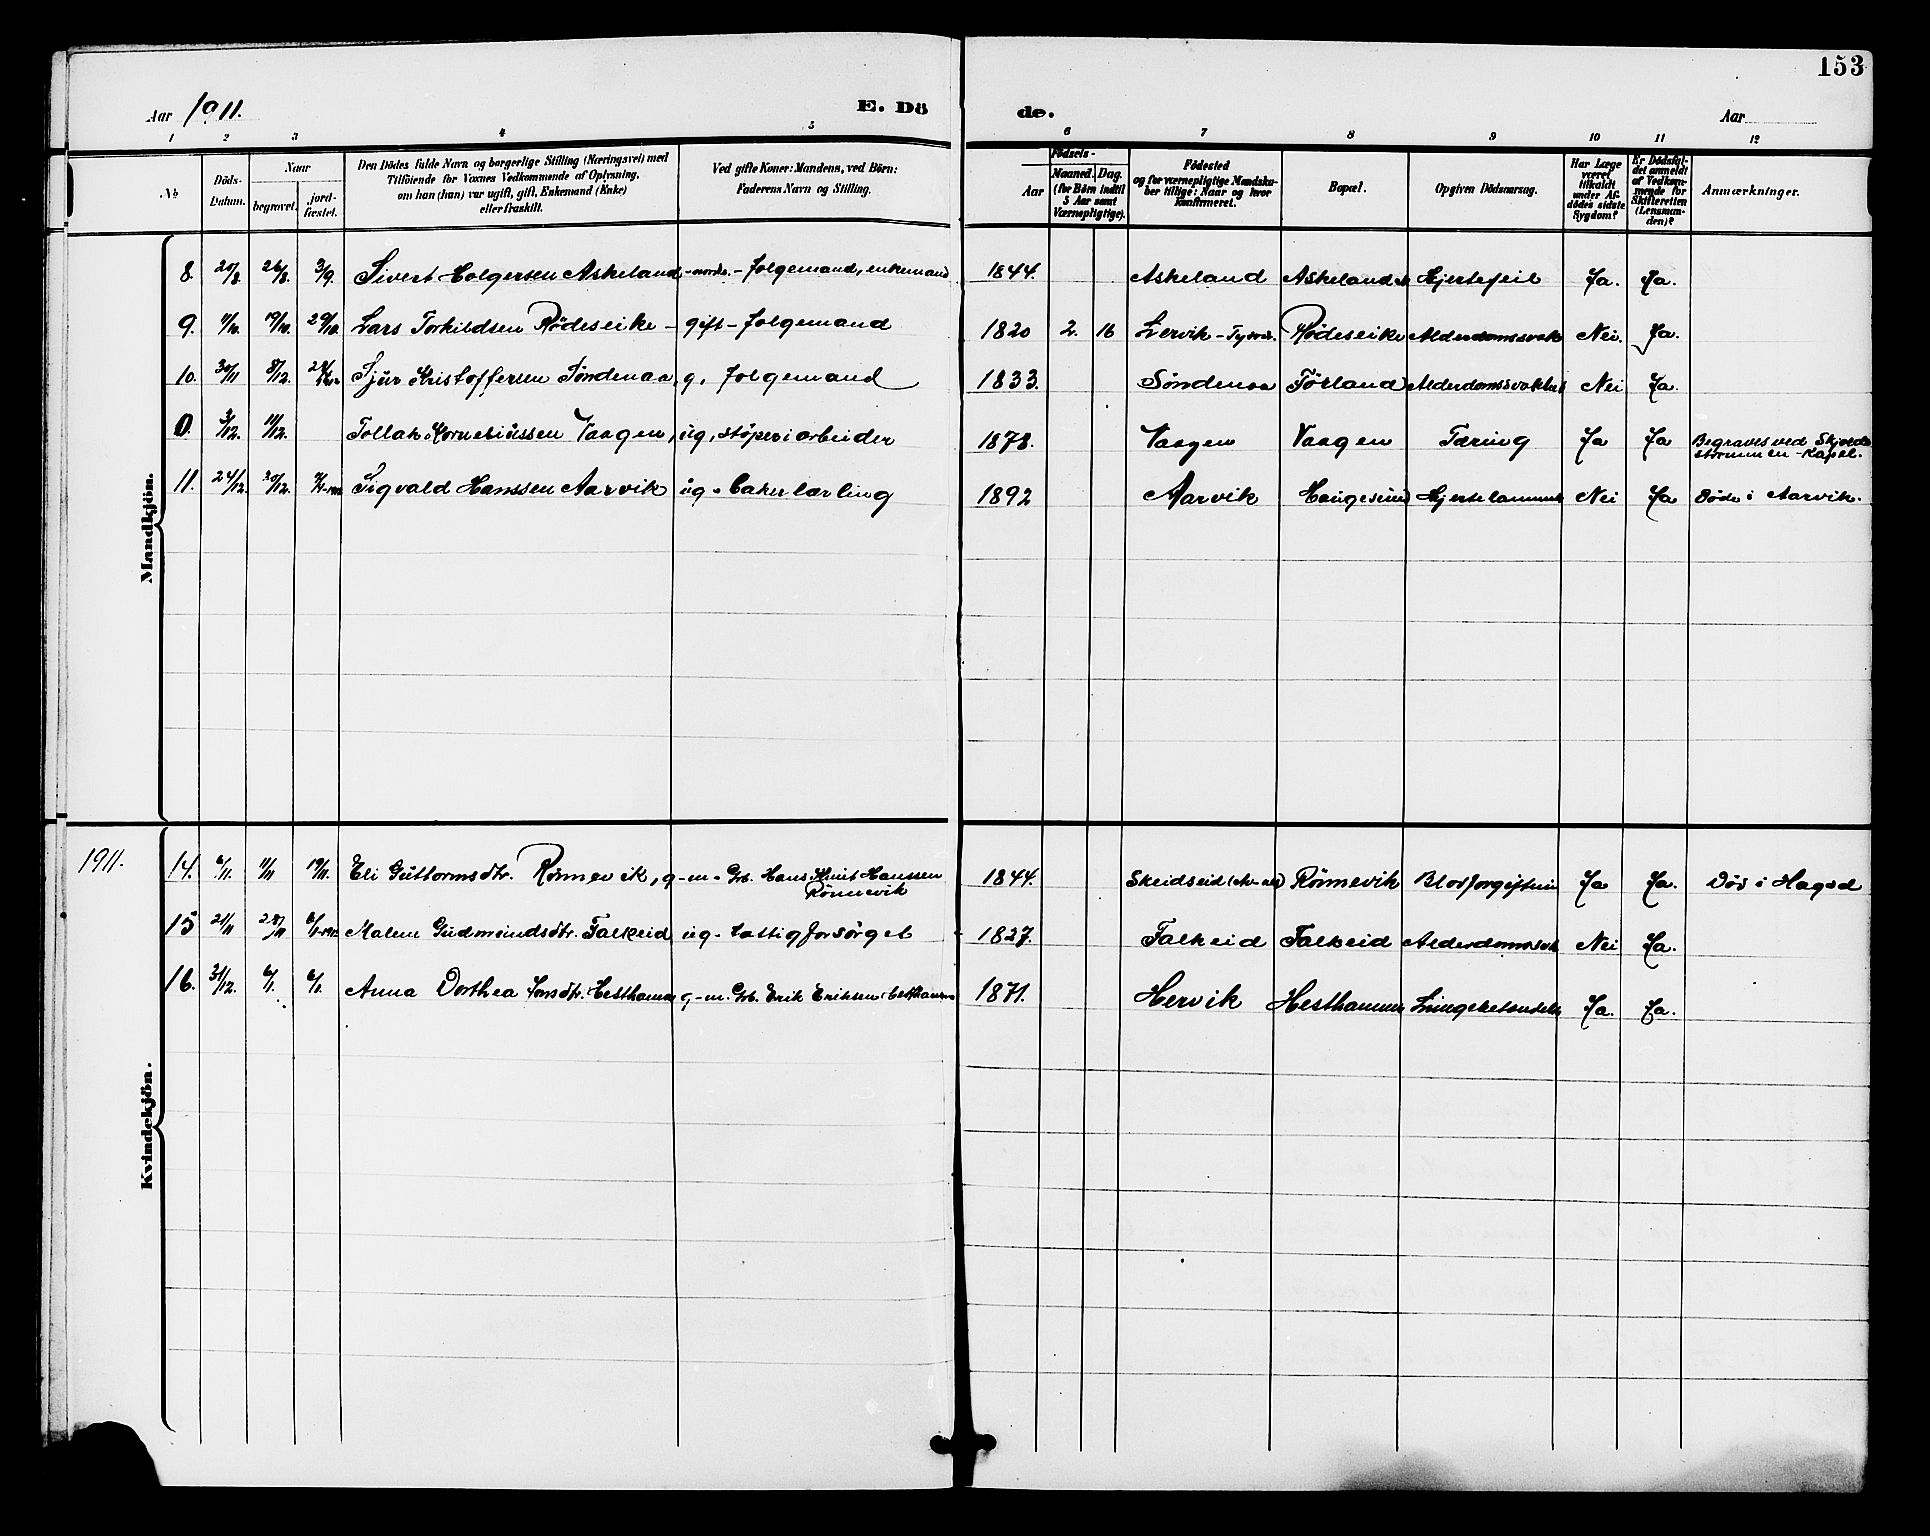 153
Aar 1911. E. Dö de. Aar
1 2 3 4 5 6 7 8 9 10 11 12
№ Döds-Datum. Naar begravet. jord-fæstet. Den Dödes fulde Navn og borgerlige Stilling (Næringsvei) med Tilföiende for Voxnes Vedkommende af Oplysning, om han (hun) var ugift, gift, Enkemand (Enke) eller fraskilt. Ved gifte Koner: Mandens, ved Börn: Faderens Navn og Stilling. Födsels- Aar Maaned. Dag. (for Börn indtil 5 Aar samt Værnepligtige). Födested og for værnepligtige Mandskaber tillige: Naar og hvor konfirmeret. Bopæl. Opgiven Dödsaarsag. Har Læge været tilkaldt under Afdödes sidste Sygdom? Er Dödsfaldet anmeldt af Vedkommende for Skifteretten (Lensmanden)? Anmærkninger.
Mandkjön.
8. 20/8. 26/8. 3/9. Sivert Holgersen Askeland - nordre - folgemand, enkemand 1844. Askeland Askeland Hjertefeil Ja. Ja.
9. 11/10. 19/10. 29/10. Lars Torkildsen Rödeseike - gift - folgemand 1820 2. 16 Lervik - Tysvær. Rödeseike Alderdomssvak Nei. Ja.
10. 30/11 8/12. Sjur Kristoffersen Söndenaa, g. folgemand 1833. Söndenaa Förland Alderdomssvakhet Nei Ja.
0. 3/12. 11/12. Tollak Korneliussen Vaagen, ug, stöperiarbeider 1878. Vaagen Vaagen Tæring Ja Ja Begraves ved Skjolda
strömmen - Kapel.
11. 24/12. 30/12. Sigvald Hanssen Aarvik ug - bakerlærling 1892 Aarvik Haugesund Hjertelammels Nei Ja Döde i Aarvik.
Kvindekjön.
1911. 14. 6/11. 11/11 19/11. Eli Guttormsdtr. Rönnevik, g - m - Grb. Hans Knut Hanssen
Rönnevik 1844. Skeidseid Rönnevik Blodforgiftnin Ja Ja. Död i Hagad
15 21/11 28/11 Malene Gudmundsdtr. Falkeid ug - fattigforsörget 1827. Falkeid Falkeid Alderdomssvk Nei Ja.
16. 31/12. 6/1. 6/1. Anna Dorthea Jonsdtr. Hesthammer g - m. Grb. Erik Eriksen Hesthammer 1871. Hervik Hesthammer Lungebetendelse Ja. Ja.